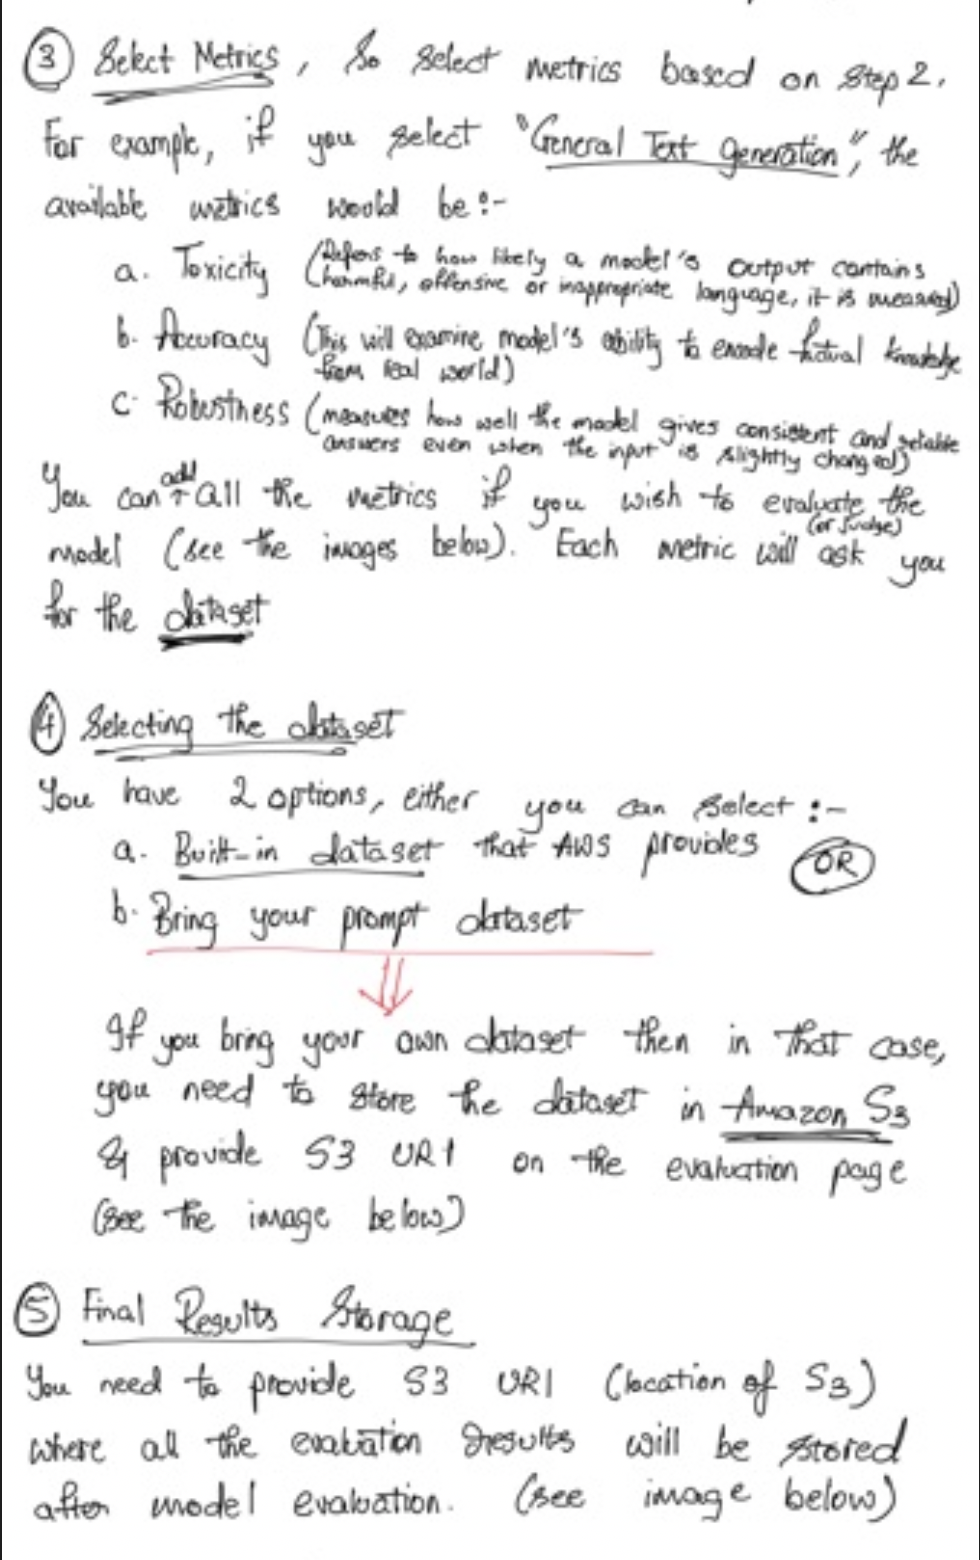 ③ Select Metrics, So select metrics based on step 2.
For example, if you select "General Text generation", the
available metrics would be :-
a. Toxicity (Refers to how likely a model's output contains
harmful, offensive or inappropriate language, it is measured)
b. Accuracy (This will examine model's ability to encode factual knowledge
from real world)
c. Robustness (measures how well the model gives consistent and reliable
answers even when the input is slightly changed)
You can add all the metrics if you wish to evaluate the
(or judge)
model (see the images below). Each metric will ask you
for the dataset
④ Selecting the dataset
You have 2 options, either you can select :-
a. Built-in dataset that AWS provides OR
b. Bring your prompt dataset
If you bring your own dataset then in that case,
you need to store the dataset in Amazon S3
& provide S3 URI on the evaluation page
(see the image below)
⑤ Final Results Storage
You need to provide S3 URI (location of S3)
where all the evaluation results will be stored
after model evaluation. (see image below)